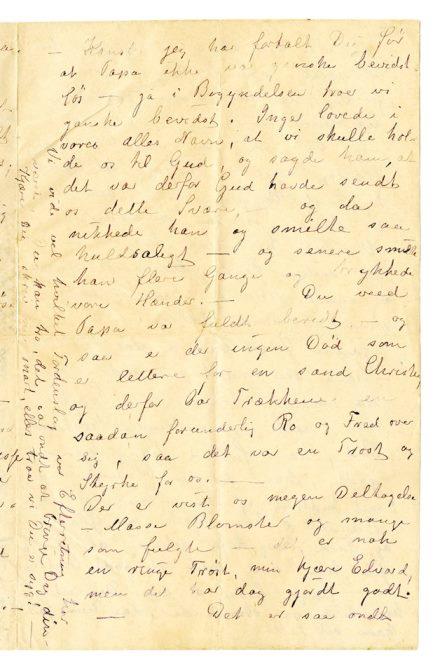 — Kanst jeg har fortalt Dig før
at Papa ikke var ganske bevidst-
løs — ja i Begyndelsen troe vi
ganske bevidst. Inger lovede i
vores alles Navn, at vi skulle hol-
de os til Gud, og sagde ham, at
det var derfor Gud havde sendt
os dette Svære, — og da
nikkede han og smilte saa
huldsaligt — og senere smilte
han flere Gange og trykkede
vore Hænder. — Du veed
Papa va fuldt beredt — og
saa e der ingen Død som
e lettere for en sand Christen,
og derfor var Trækkene en
saadan forunderlig Ro og Fred over
sig, saa det var en Trøst og
Styrke for os. —
Der er vist os megen Deltagelse
— Masse Blomster og mange
som fulgte — det er nok
en ringe Trøst, min kjære Edvard,
men det har dog gjordt godt.
— Det er saa ondt
Vi vide vel hvilket Tordenslag var Efterretning her